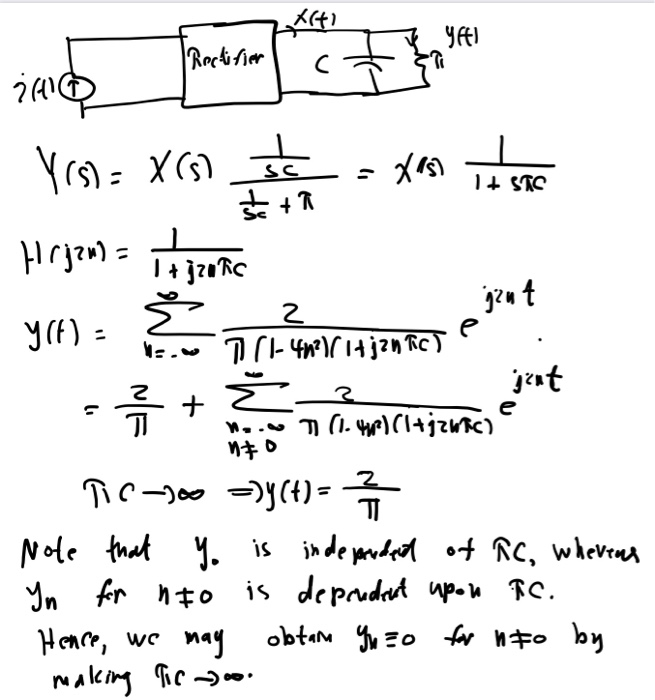 x(t)
y(t)
Rectifier
C
R
i(t)
Y(s) = X(s) \frac{\frac{1}{sC}}{\frac{1}{sC} + R} = X(s) \frac{1}{1 + sRC}
H(j2n) = \frac{1}{1 + j2nRC}
y(t) = \sum_{n=-∞}^{∞} \frac{2}{π(1-4n²)(1+j2nRC)} e^{j2nt}.
= \frac{2}{π} + \sum_{n=-∞, n≠0}^{∞} \frac{2}{π(1-4n²)(1+j2nRC)} e^{j2nt}
RC → ∞ ⇒ y(t) = \frac{2}{π}
Note that Y₀ is independent of RC, whereas
Yn for n≠0 is dependent upon RC.
Hence, we may obtain Yn≡0 for n≠0 by
making RC → ∞.